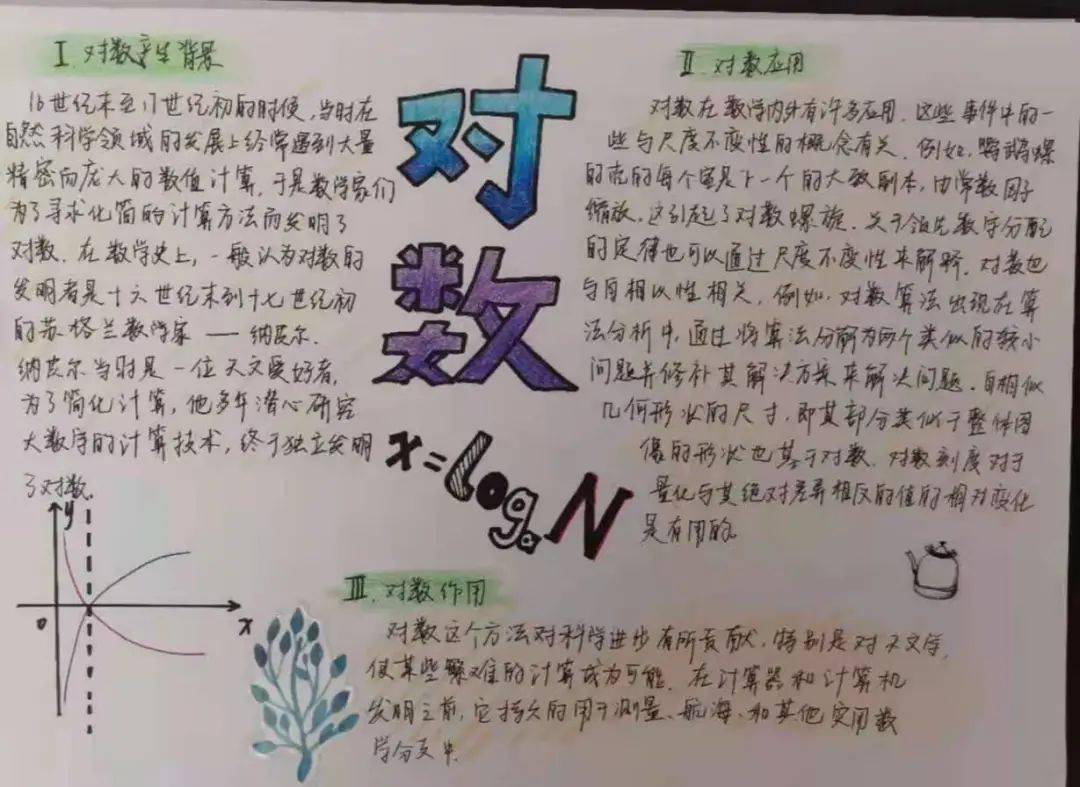 Ⅰ.对数产生背景
16世纪末至17世纪初的时候,当时在
自然科学领域的发展上经常遇到大量
精密而庞大的数值计算,于是数学家们
为了寻求化简的计算方法而发明了
对数.在数学史上,一般认为对数的
发明者是十六世纪末到十七世纪初
的苏格兰数学家——纳皮尔.
纳皮尔当时是一位天文爱好者,
为了简化计算,他多年潜心研究
大数字的计算技术,终于独立发明
了对数.
y
0
x
对
数
x=logₐN
Ⅱ.对数应用
对数在数学内外有许多应用.这些事件中的一
些与尺度不变性的概念有关.例如,鹦鹉螺
的壳的每个室是下一个的大致副本,由常数因子
缩放.这引起了对数螺旋.关于领先数字分配
的定律也可以通过尺度不变性来解释.对数也
与自相似性相关.例如,对数算法出现在算
法分析中,通过将算法分解为两个类似的较小
问题并修补其解决方案来解决问题.自相似
几何形状的尺寸,即其部分类似于整体图
像的形状也基于对数.对数刻度对于
量化与其绝对差异相反的值的相对变化
是有用的.
Ⅲ.对数作用
对数这个方法对科学进步有所贡献,特别是对天文学,
使某些繁难的计算成为可能.在计算器和计算机
发明之前,它持久的用于测量、航海、和其他实用数
学分支中.